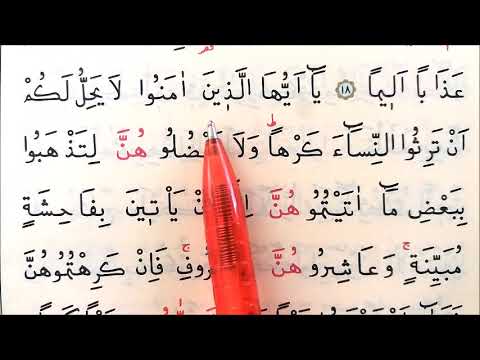 عَذَابًا اَل۪يمًا ١٨ يَٓا اَيُّهَا الَّذ۪ينَ اٰمَنُوا لَا يَحِلُّ لَكُمْ
اَنْ تَرِثُوا النِّسَٓاءَ كَرْهًاۜ وَلَا هُنَّ لِتَذْهَبُوا
بِبَعْضِ مَٓا اٰتَيْتُمُو هُنَّ يَأْت۪ينَ بِفَاحِشَةٍ
مُبَيِّنَةٍۚ وَعَاشِرُو هُنَّ فَاِنْ كَرِهْتُمُوهُنَّ